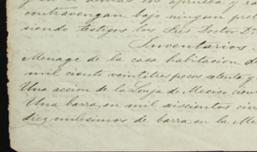 contravengan bajo ningun pret
siendo testigos los Sres Doctor D
Inventarios
Menage de la casa habitacion de
mil ciento veintitres pesos ochenta y
Una accion de la Lonja de Mexico cien
Una barra, en mil seiscientos cin
diez milesimos de barra en la M